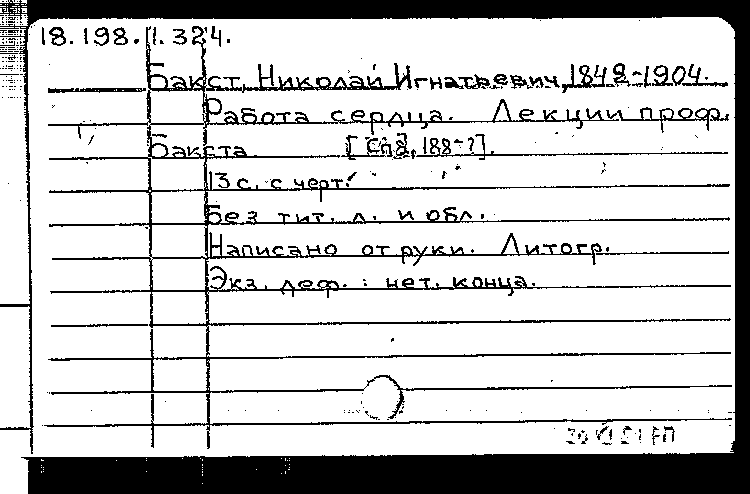 18.198.1.324.
Бакст, Николай Игнатьевич, 1842-1904.
Работа сердца. Лекции проф.
Бакста. [Спб, 188-?].
13 с. с черт.
Без тит. л. и обл.
Написано от руки. Литогр.
Экз. деф.: нет. конца.